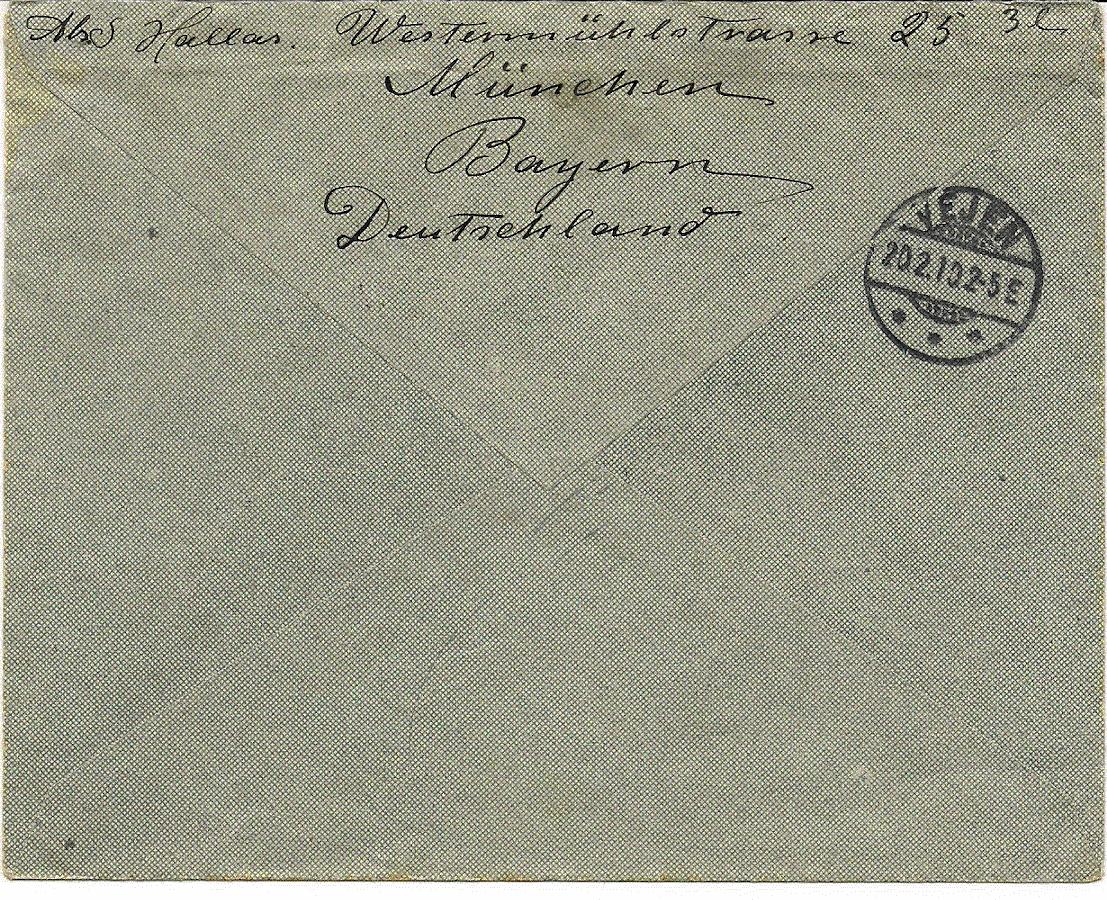 Abs Hallas. Westermühlstrasse 25 3 l
München
Bayern
Deutschland
VEJEN
20.2.10.2-5E